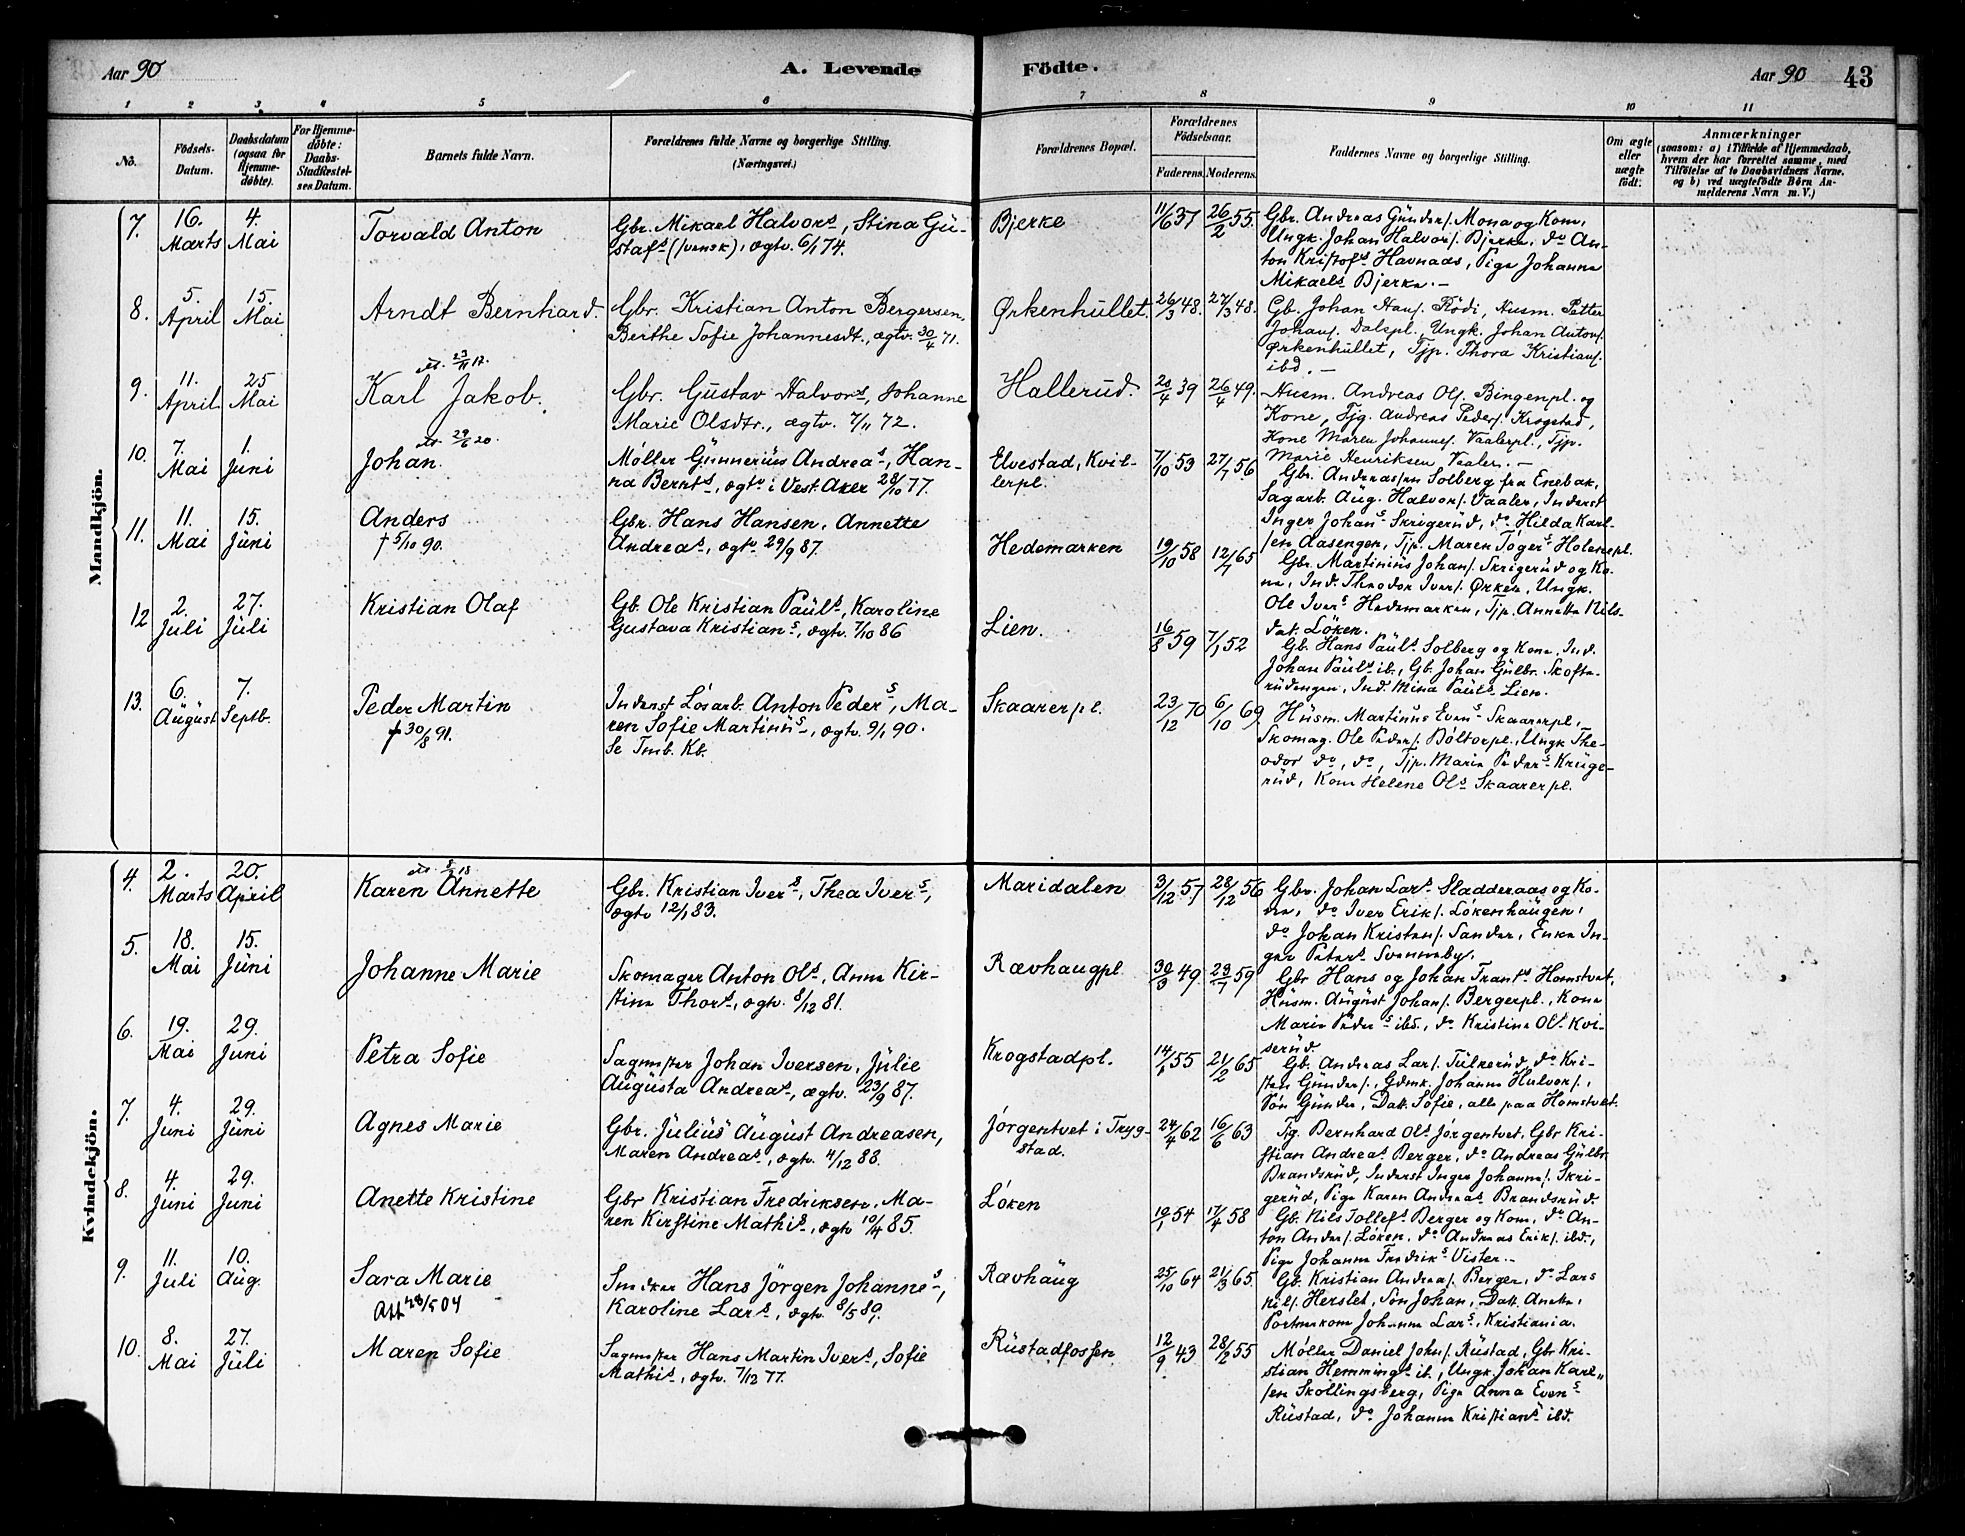 Aar 90
A. Levende
Födte.
Aar 90
43
1 2 3 4 5 6 7 8 9 10 11
No.
Födsels-Datum.
Daabsdatum (ogsaa for Hjemme-döbte).
For Hjemme-döbte: Daabs-Stadfæstel-ses Datum.
Barnets fulde Navn.
Forældrenes fulde Navne og borgerlige Stilling.
(Næringsvei.)
Forældrenes Bopæl.
Forældrenes Födselsaar.
Faderens. Moderens.
Faddernes Navne og borgerlige Stilling.
Om ægte eller uægte födt.
Anmærkninger
(saasom: a) i Tilfælde af Hjemmedaab,
hvem der har forrettet samme, med
Tilföielse af to Daabsvidners Navne,
og b) ved uægtefödte Börn An-
melderens Navn m. V.)
Mandkjön.
7.
16. Marts
4. Mai
Torvald Anton
Gbr. Mikael Halvors, Stina Gu-
stafs (svensk), ægtv. 6/1 74.
Bjerke
11/6 37
26/2 55.
Gbr. Andreas Gunders. Mona og Kone,
Ungk. Johan Halvors. Bjerke, do An-
ton Kristofs Havnaas, Pige Johanne
Mikaels Bjerke.
8.
5. April
15. Mai
Arndt Bernhard.
Gbr. Kristian Anton Bergersen,
Berthe Sofie Johannesdt., ægtv. 30/4 71.
Ørkenhullet.
26/3 48.
27/3 48.
Gb. Johan Hans. Rödi, Husm. Petter
Johans. Dalepl., Ungk. Johan Antons.
Ørkenhullet, Tjp. Thora Kristians.
ibd.
9.
11. April
25 Mai
Karl Jakob.
Gbr. Gustav Halvors, Johanne
Marie Olsdtr., ægtv. 7/11 72.
Hallerud.
20/4 39
26/4 49.
Husm. Andreas Ols. Bingenpl. og
Kone, Tjg. Andreas Peders. Krogstad,
Kone Maren Johannes. Vaalerpl., Tjp.
Marie Henriksen Vaaler.
10.
7. Mai
1. Juni
Johan.
Møller Gunnerius Andreas, Han-
na Bernts, ægtv i Vest Aker 28/10 77.
Elvestad, Kvil-
lerpl.
7/10 53
27/7 56
Gbr. Andreassen Solberg fra Enebak,
Sagarb. Aug. Halvors. Vaaler, Inderst
Inger Johans Skrigerud, do Hilda Karl-
sen Aasengen, Tjp. Maren Togers Holenepl.
11.
11. Mai
15. Juni
Anders
† 5/10 90.
Gbr. Hans Hansen, Annette
Andreas, ægtv 29/9 87.
Hedemarken
19/10 58
12/7 65
Gbr. Martinius Johans. Skrigerud og Ko-
ne, Ind. Theodor Ivers. Ørken, Ungk.
Ole Ivers Hedemarken, Tjp. Annette Nils-
dat. Löken.
12
2. Juli
27. Juli
Kristian Olaf
Gb. Ole Kristian Pauls, Karoline
Gustava Kristians, ægtv. 7/10 86
Lien.
16/8 59
7/1 52
Gb. Hans Pauls Solberg og Kone, Ind.
Johan Pauls ib., Gb. Johan Gulbr. Skofte-
rudengen, Ind. Mina Pauls Lien.
13.
6. August
7. Septb.
Peder Martin
† 30/8 91.
Inderst Lösarb. Anton Peders, Ma-
ren Sofie Martinus, ægtv. 9/1 90.
Se Tmb. Kb.
Skaarerpl.
23/12 70
6/10 69
Husm. Martinus Evens Skaarerpl.,
Skomag. Ole Peders. Böltorpl., Ungk The-
odor do, do, Tjp. Marie Peders Kruge-
rud, Kone Helene Ols Skaarerpl.
Kvindekjön.
4.
2. Marts
20. April
Karen Annette
Gbr. Kristian Ivers, Thea Ivers,
ægtv 12/1 83.
Maridalen
3/12 57
28/12 56
Gbr. Johan Lars Sladderaas og Ko-
ne, do Iver Eriks. Lökenhaugen,
do Johan Kristens. Sander, Enke In-
ger Peters Svenneby.
5.
18. Mai
15. Juni
Johanne Marie
Skomager Anton Ols, Anne Kir-
stine Thors, ægtv. 8/12 81.
Rævhaugpl
30/3 49.
23/7 59
Gbr Hans og Johan Frants Homstvet,
Husm. August Johans. Bergerpl., Kone
Marie Peders ibd., do Kristine Ols Kvi-
serud.
6.
19. Mai
29. Juni
Petra Sofie
Sagmester Johan Iversen, Julie
Augusta Andreas, ægtv. 23/9 87.
Krogstadpl.
14/6 55
21/2 65
Gb. Andreas Lars. Tulkerud, do Kri-
sten Gunders., Gdmk. Johanne Halvors.,
Sön Gunder, Datt. Sofie, alle paa Homstvet.
7.
4. Juni
29. Juni
Agnes Marie
Gbr. Julius August Andreasen,
Maren Andreas, ægtv. 4/12 88.
Jörgentvet i Tryg-
stad.
24/4 62
16/6 63
Tjg. Bernhard Ols Jörgentvet, Gbr Kri-
stian Andreas Berger, do Andreas Gulbr.
Brandsrud, Inderst Inger Johannes. Skri-
gerud, Pige Karen Andreas Brandsrud.
8.
4. Juni
29. Juni
Anette Kristine
Gbr Kristian Fredriksen, Ma-
ren Kirstine Mathis, ægtv 10/4 85.
Löken
19/1 54
17/4 58
Gb. Nils Tollefs Berger og Kone, do An-
ton Anders. Löken, do Andreas Eriks. ibd.,
Pige Johanne Fredriks Vister.
9.
11. Juli
10. Aug.
Sara Marie
Att 28/5 04
Snedker Hans Jörgen Johannes,
Karoline Lars, ægtv. 8/5 89.
Rævhaug
25/10 64
21/3 65.
Gb. Kristian Andreas. Berger, do Lars
Nils. Herslet, Sön Johan, Datt. Anette,
Johanne Lars, Kristiania.
10.
8. Mai
27. Juli
Maren Sofie
Sagmester Hans Martin Ivers, Sofie
Mathis, ægtv. 7/12 77.
Rustadfossen
12/9 43
28/2 55
Møller Daniel Johs. Rustad, Gbr Kri-
stian Hemmings ib., Ungk. Johan Karl-
sen Skollingsberg, Pige Anna Evens
Rustad, do Johanne Kristians ibd.